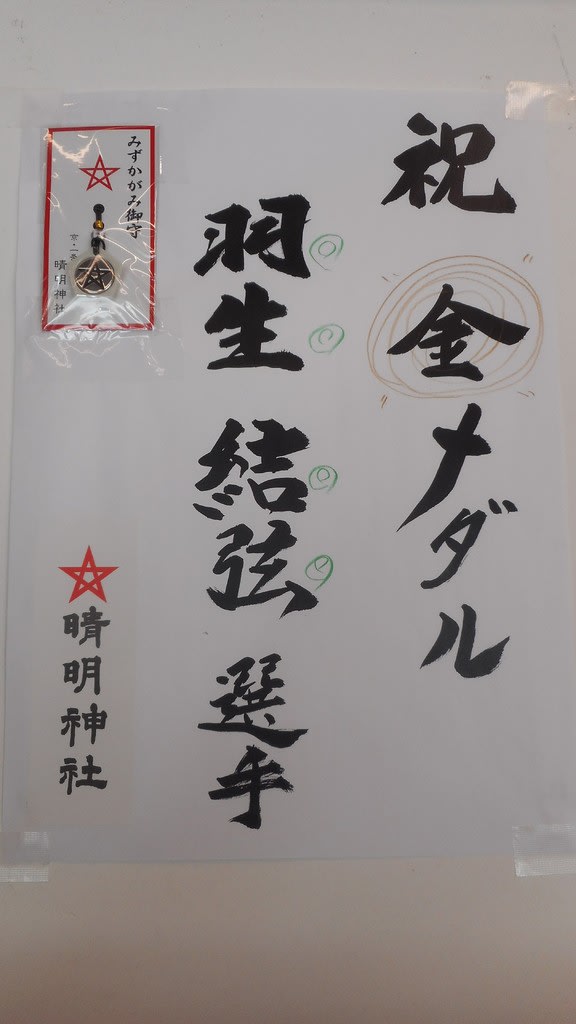 祝 金メダル
羽生 結弦 選手
みずかがみ御守
京・一条
晴明神社
晴明神社